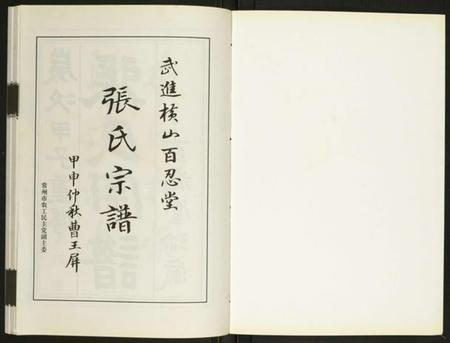 武進橫山百忍堂
張氏宗譜
甲申仲秋曹玉屏
常州市农工民主党副主委